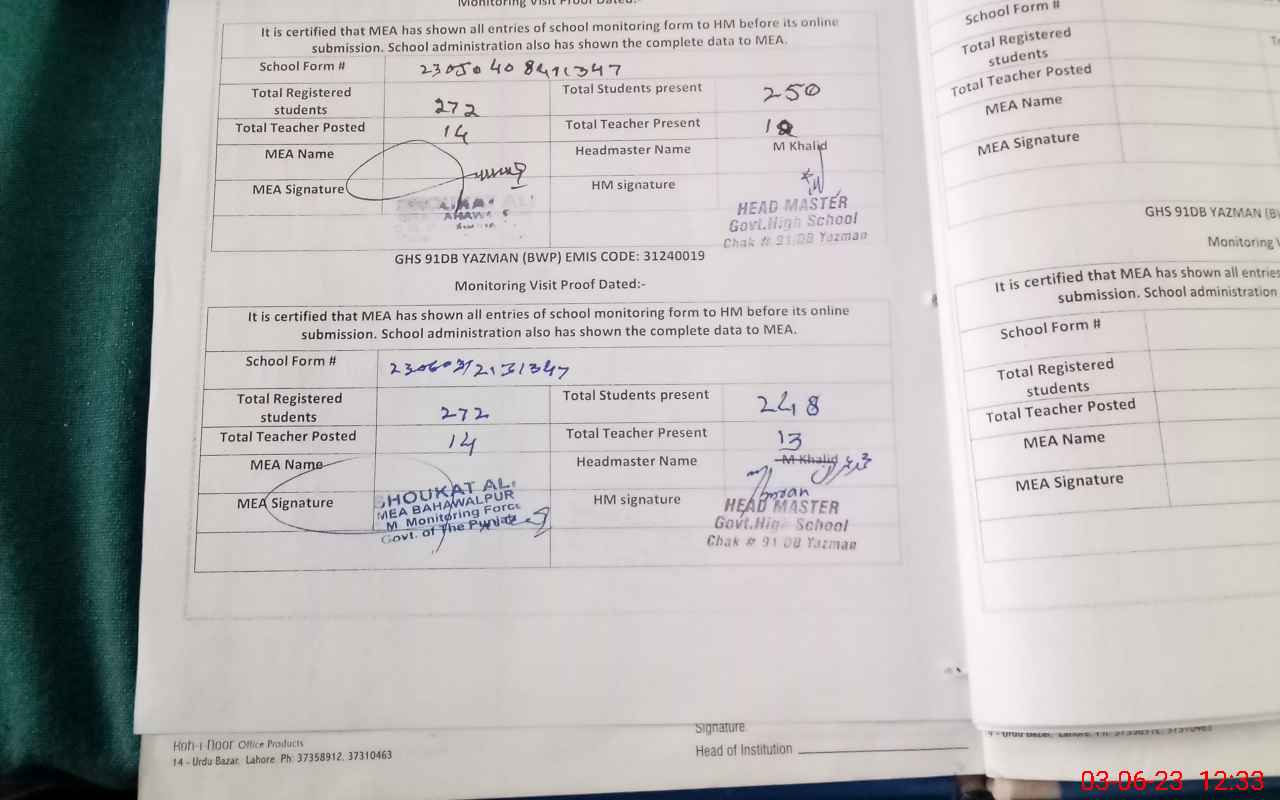 Monitoring Visit Proof Dated:-
It is certified that MEA has shown all entries of school monitoring form to HM before its online
submission. School administration also has shown the complete data to MEA.
School Form #
Total Registered students 272 Total Students present 250
Total Teacher Posted 14 Total Teacher Present
MEA Name Headmaster Name M Khalid
MEA Signature HM signature
HEAD MASTER
Govt.High School
Chak # 91/DB Yazman
GHS 91DB YAZMAN (BWP) EMIS CODE: 31240019
Monitoring Visit Proof Dated:-
It is certified that MEA has shown all entries of school monitoring form to HM before its online
submission. School administration also has shown the complete data to MEA.
School Form #
Total Registered students 272 Total Students present 248
Total Teacher Posted 14 Total Teacher Present 13
MEA Name Headmaster Name M Khalid
MEA Signature HM signature
SHOUKAT ALI
MEA BAHAWALPUR
M Monitoring Force
Govt. of The Punjab
HEAD MASTER
Govt.High School
Chak # 91/DB Yazman
Koh-i-noor Office Products
14 - Urdu Bazar, Lahore. Ph: 37358912, 37310463
Signature
Head of Institution
School Form #
Total Registered
students
Total Teacher Posted
MEA Name
MEA Signature
GHS 91DB YAZMAN
Monitoring
It is certified that MEA has shown all entries
submission. School administration
School Form #
Total Registered
students
Total Teacher Posted
MEA Name
MEA Signature
03-06-23 12:33